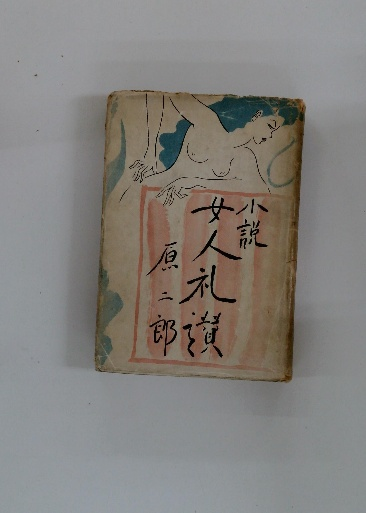 小説
女人礼讃
原二郎